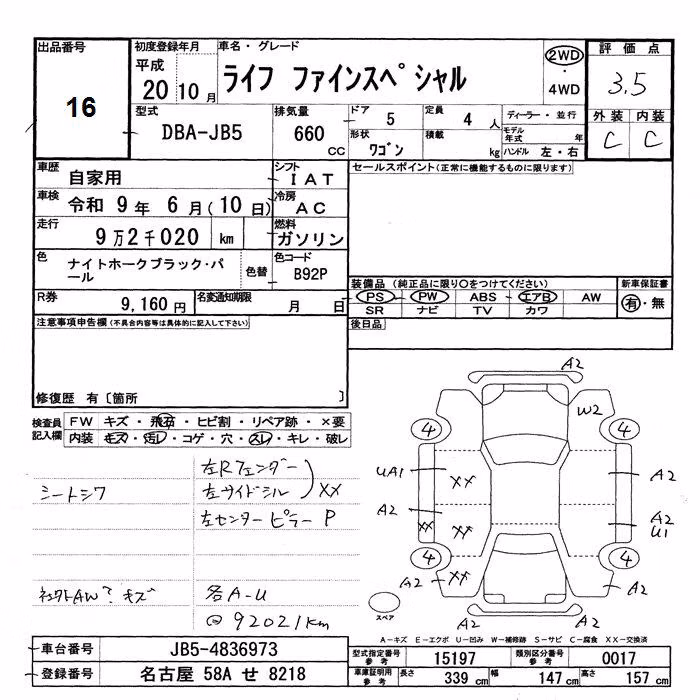 出品番号
16
初度登録年月
平成
20 10月
車名・グレード
ライフ ファインスペシャル
2WD
・
4WD
評価点
3.5
外装 内装
C C
型式
DBA-JB5
排気量
660
CC
ドア
5
定員
4 人
ディーラー・並行
形状
ワゴン
積載
kg
モデル年式
年
ハンドル 左・右
車歴
自家用
シフト
IAT
セールスポイント(正常に機能するものに限ります)
車検
令和 9年 6月(10日)
冷房
AC
走行
9万2千020 km
燃料
ガソリン
色
ナイトホークブラック・パール
色替
色コード
B92P
装備品(純正品に限り○をつけてください)
新車保証書
PS PW ABS エアB AW
有・無
SR ナビ TV カワ
R券
9,160円
名変通知期限
月 日
後日品
注意事項申告欄(不具合内容等は具体的に記入して下さい)
修復歴 有〔箇所 〕
検査員
記入欄
FW キズ・飛石・ヒビ割・リペア跡・×要
内装 キズ・汚レ・コゲ・穴・スレ・キレ・破レ
シートシワ
左Rフェンダー
左サイドシル
XX
左センターピラー P
社外AW? キズ
各A-U
@92021km
A2
W2
4
4
UA1
XX
A2
A2
XX
XX
A2
U1
4
4
A2
XX
A2
A2
スペア
A-キズ E-エクボ U-凹み W-補修跡 S-サビ C-腐食 XX-交換済
車台番号
JB5-4836973
登録番号
名古屋 58A せ 8218
型式指定番号
参考
15197
類別区分番号
参考
0017
車庫証明用
参考
長さ
339 cm
幅
147 cm
高さ
157 cm